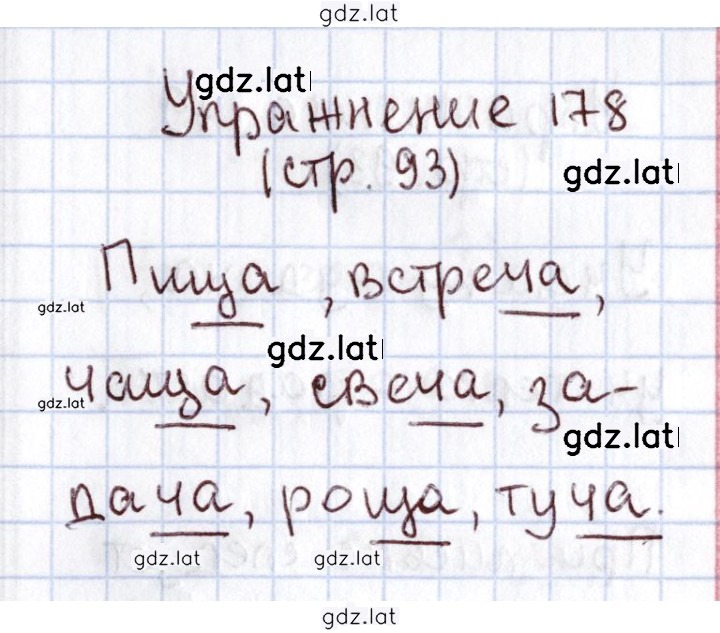 gdz.lat
gdz.lat
Упражнение 178
(стр. 93)
gdz.lat
Пища, встреча,
gdz.lat
gdz.lat
чаща, свеча, за-
gdz.lat
gdz.lat
дача, роща, туча.
gdz.lat gdz.lat
gdz.lat